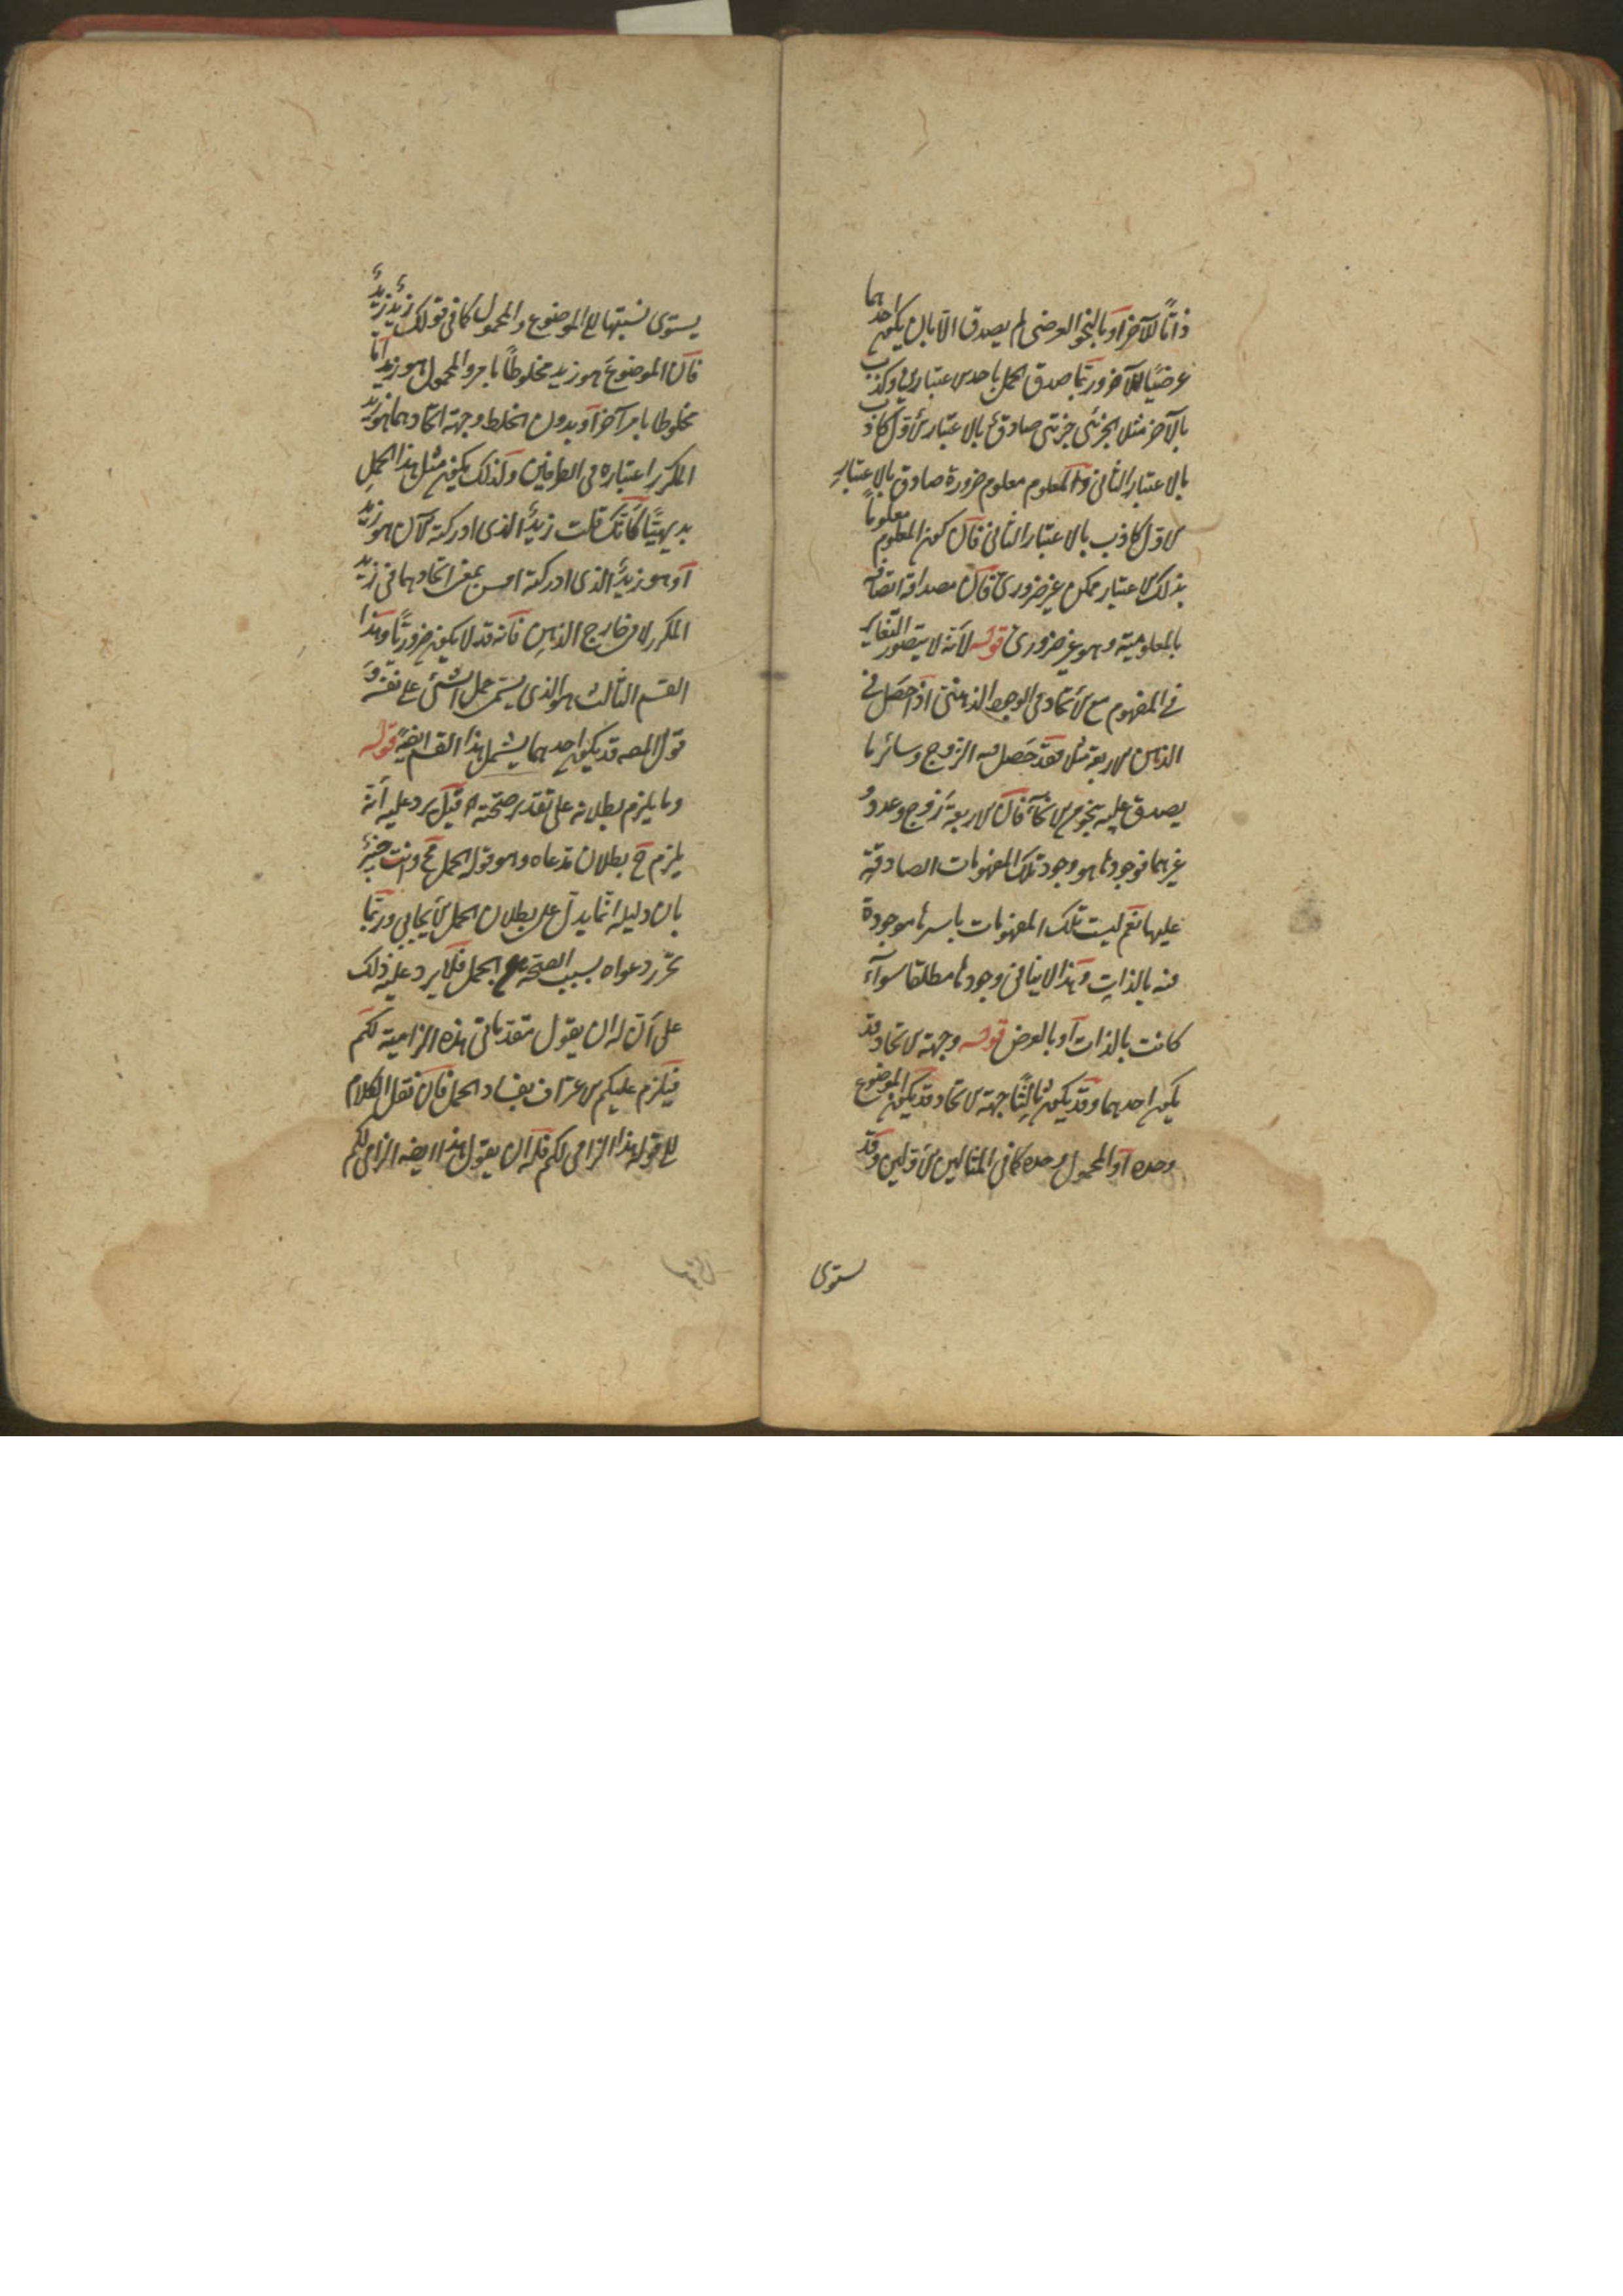 ذاتا للآخر او بالنحو العرضى لم يصدق الا بان يكون احدهما
عرضيا للآخر وربما صدق الحمل باحد الاعتبارين وكذب
بالآخر مثلا الجزئى جزئى صادق بالاعتبار الاول كاذب
بالاعتبار الثانى والمعلوم معلوم ضرورة صادق بالاعتبار
الاول كاذب بالاعتبار الثانى فان كون المعلوم معلوما
بذلك الاعتبار ممكن غير ضرورى فان مصداقه اتصافه
بالمعلومية وهو غير ضرورى قوله لانه لا يتصور التغاير
فى المفهوم مع الاتحاد فى الوجود الذهنى اذ احصل فى
الذهن الاربعة مثلا فقد حصل فيه الزوج وسائر ما
يصدق عليه بنحو من الانحاء فان الاربعة زوج وعدد و
غيرهما فوجودها هو وجود تلك المفهومات الصادقة
عليها نعم ليست تلك المفهومات باسرها موجودة
فيه بالذات وهذا لا ينافى وجودها مطلقا سواء
كانت بالذات او بالعرض قوله وجهة الاتحاد قد
يكون احدهما وقد يكون ثالثا جهة الاتحاد قد يكون الموضوع
وحده او المحمول وحده كما فى المثالين الاولين وقد
يستوى
يستوى نسبتها الى الموضوع والمحمول كما فى قولك زيد زيد
فان الموضوع هو زيد مخلوطا بامر والمحمول هو زيد اما
مخلوطا بامر آخر او بدون الخلط وجهة اتحادهما هو زيد
المكرر اعتباره فى الطرفين وكذلك يكون مثل هذا الحمل
بديهيا كانك قلت زيد الذى ادركته الآن هو زيد
او هو زيد الذى ادركته امس بمعنى اتحادهما فى زيد
المكرر لا فى خارج الذهن فانه قد لا يكون ضروريا وهذا
القسم الثالث هو الذى يسمى حمل الشئ على نفسه و
قول المصه قد يكون احدهما يشمل هذا القسم ايضا قوله
وما يلزم بطلانه على تقدير صحته اه قيل يرد عليه انه
يلزم ح بطلان مدعاه وهو قوله الحمل مح وانت خبير
بان دليله انما يدل على بطلان الحمل الايجابى وربما
تحرر دعواه بسبب الصحة عن الحمل فلا يرد عليه ذلك
على ان له ان يقول مقدماتى هذه الزامية لكم
فيلزم عليكم الاعتراف بفساد الحمل فان نقل الكلام
الى قوله هذا الزامى لكم فله ان يقول هذا ايضا الزامى لكم